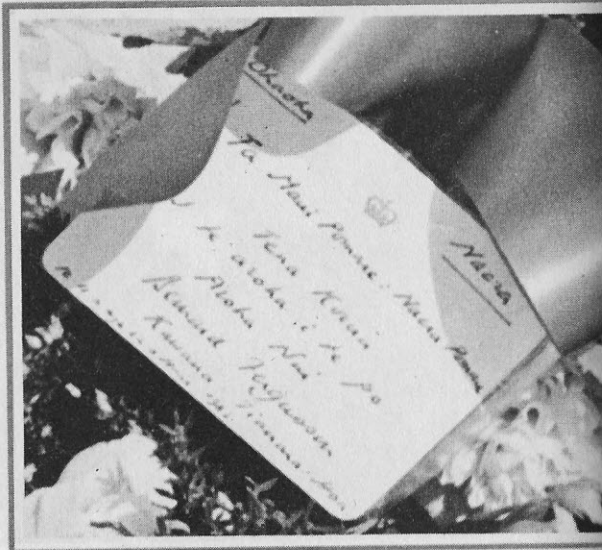 Ohaoha
Naera
Ta Maui Pomare. Naera Pomare
Tena Korua
te aroha i te po
Aroha Nui
Bernard Fergusson
Kawana Tianara